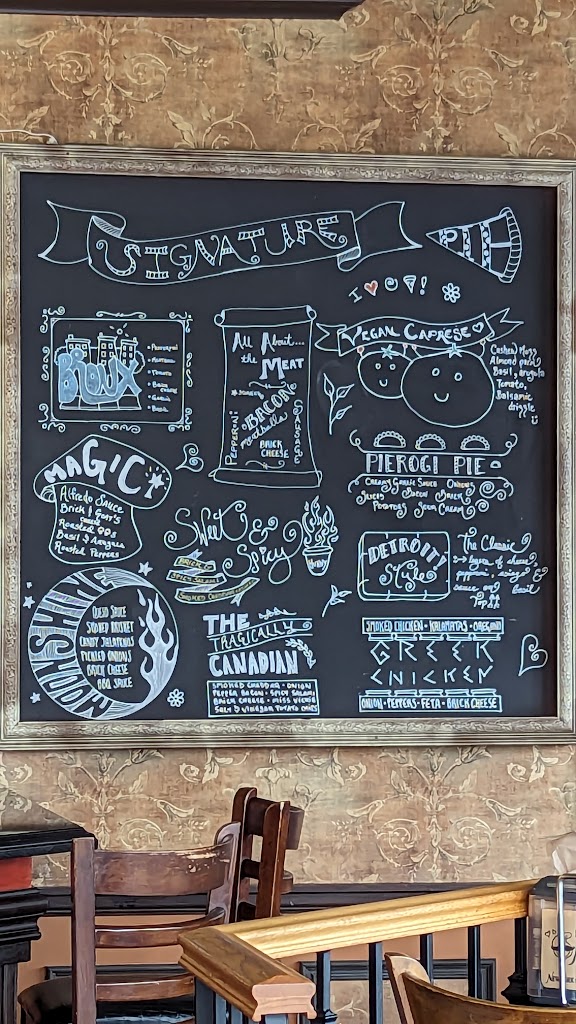 SIGNATURE
PIE
I ❤ !
BRONX
• PEPPERONI
• TOMATO
• BRICK CHEESE
• GARLIC
• BASIL
All About...
the MEAT
BACON
meatballs
PEPPERONI
SAUSAGE
BRICK
CHEESE
VEGAN CAPRESE
Cashew Mozz
Almond
Basil, arugula
Tomato,
Balsamic
drizzle
MAGIC!
Alfredo Sauce
Brick & Goat's
CHEESE
Roasted
Basil & Arugula
Roasted Peppers
PIEROGI PIE
CREAMY GARLIC SAUCE ONIONS
BACON BRICK
POTATOES SOUR CREAM
Sweet &
Spicy
BRICK
SPICY SALAMI
HONEY
DETROIT
Style
The Classic
layers of cheese
sauce and Basil
Top it
MOONSHINE
QUESO SAUCE
SMOKED BRISKET
CANDY JALAPENOS
PICKLED ONIONS
BRICK CHEESE
BBQ SAUCE
THE
TRAGICALLY
CANADIAN
SMOKED CHEDDAR • ONION
PEPPER BACON • SPICY SALAMI
BRICK CHEESE • MISS VICKIE
SALT & VINEGAR POTATO CHIPS
SMOKED CHICKEN • KALAMATAS • OREGANO
GREEK
CHICKEN
ONION • PEPPERS • FETA • BRICK CHEESE